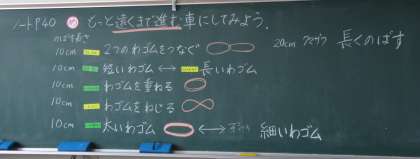 ノートP.40 め もっと遠くまで進む車にしてみよう。
のばす長さ
10cm 2つのわゴムをつなぐ
10cm 短いわゴム ↔ 長いわゴム
10cm わゴムを重ねる
10cm わゴムをねじる
10cm 太いわゴム ↔ 細いわゴム
20cm 長くのばす